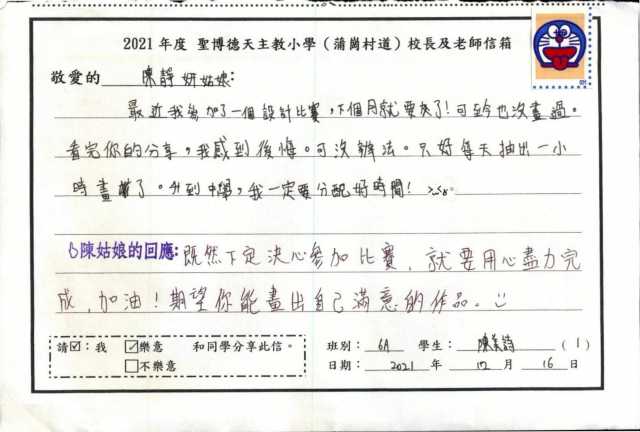 2021 年度 聖博德天主教小學（蒲崗村道）校長及老師信箱
敬愛的 陳靜妍姑娘：
最近我參加了一個設計比賽，下個月就要交了！可至今也沒畫過。
看完你的分享，我感到後悔。可沒辦法。只好每天抽出一小
時畫了。升到中學，我一定要分配好時間！
陳姑娘的回應：既然下定決心參加比賽，就要用心盡力完
成，加油！期望你能畫出自己滿意的作品。
請☑：我 ☑樂意 和同學分享此信。
□不樂意
班別：6A 學生：陳美詩（1）
日期：2021 年 12 月 16 日